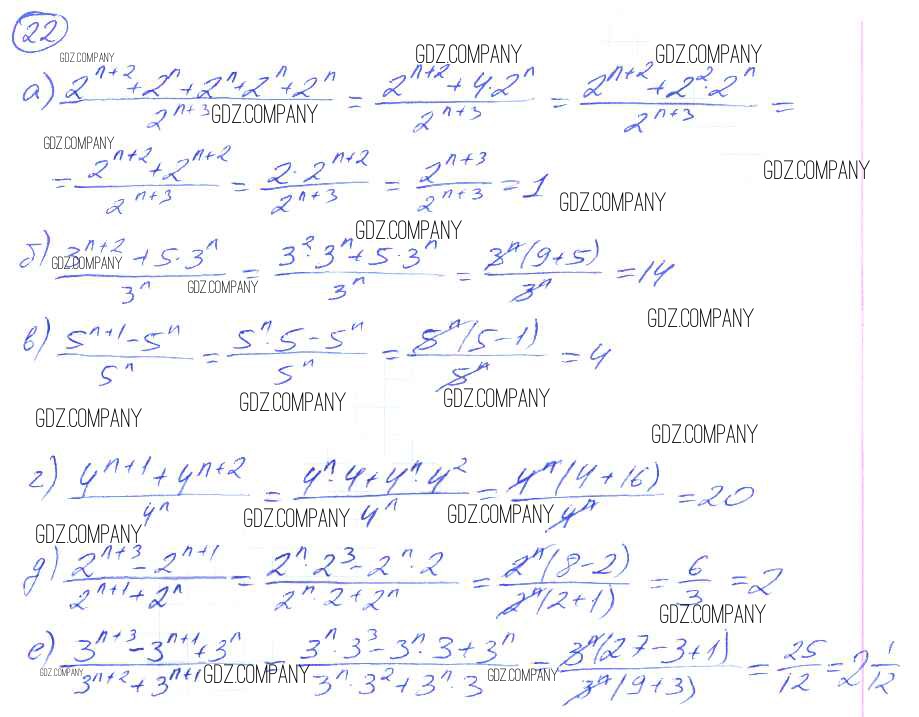 22
GDZ.COMPANY GDZ.COMPANY GDZ.COMPANY
а) (2^(n+2) + 2^n + 2^n + 2^n + 2^n)/2^(n+3) = (2^(n+2) + 4·2^n)/2^(n+3) = (2^(n+2) + 2^2·2^n)/2^(n+3) =
GDZ.COMPANY
GDZ.COMPANY GDZ.COMPANY
= (2^(n+2) + 2^(n+2))/2^(n+3) = (2·2^(n+2))/2^(n+3) = 2^(n+3)/2^(n+3) = 1
GDZ.COMPANY
GDZ.COMPANY
б) (3^(n+2) + 5·3^n)/3^n = (3^2·3^n + 5·3^n)/3^n = 3^n(9+5)/3^n = 14
GDZ.COMPANY GDZ.COMPANY
GDZ.COMPANY
в) (5^(n+1) - 5^n)/5^n = (5^n·5 - 5^n)/5^n = 5^n(5-1)/5^n = 4
GDZ.COMPANY GDZ.COMPANY GDZ.COMPANY
GDZ.COMPANY
г) (4^(n+1) + 4^(n+2))/4^n = (4^n·4 + 4^n·4^2)/4^n = 4^n(4+16)/4^n = 20
GDZ.COMPANY GDZ.COMPANY GDZ.COMPANY
д) (2^(n+3) - 2^(n+1))/(2^(n+1) + 2^n) = (2^n·2^3 - 2^n·2)/(2^n·2 + 2^n) = 2^n(8-2)/2^n(2+1) = 6/3 = 2
GDZ.COMPANY
е) (3^(n+3) - 3^(n+1) + 3^n)/(3^(n+2) + 3^(n+1)) = (3^n·3^3 - 3^n·3 + 3^n)/(3^n·3^2 + 3^n·3) = 3^n(27-3+1)/3^n(9+3) = 25/12 = 2 1/12
GDZ.COMPANY GDZ.COMPANY GDZ.COMPANY